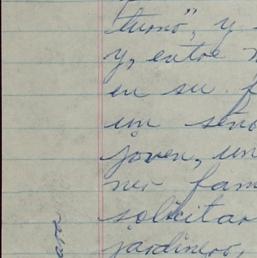 turno", y
y, entre
en su
un seño
joven, un
ner fam
solicitar
jardinero,